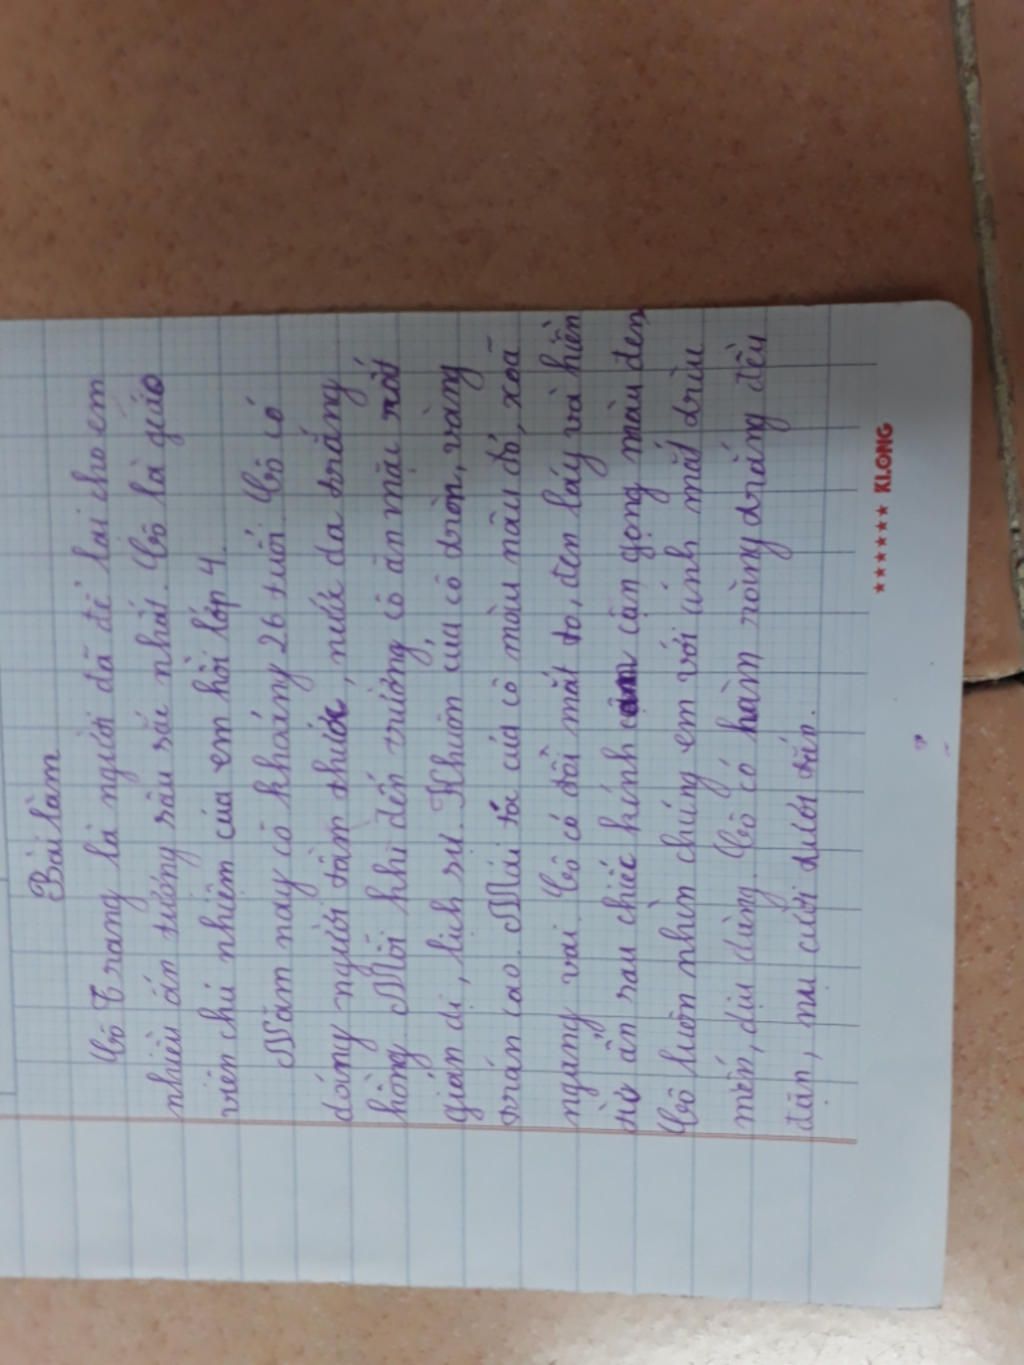 Bài làm
Cô Trang là người đã để lại cho em
nhiều ấn tượng sâu sắc nhất. Cô là giáo
viên chủ nhiệm của em hồi lớp 4.
Năm nay cô khoảng 26 tuổi. Cô có
dáng người tầm thước, nước da trắng
hồng. Mỗi khi đến trường cô ăn mặc rất
giản dị, lịch sự. Khuôn của cô tròn, vầng
trán cao. Mái tóc của cô màu nâu đỏ, xoã
ngang vai. Cô có đôi mắt to, đen láy và hiền
từ ẩn sau chiếc kính cận gọng màu đen,
Cô luôn nhìn chúng em với ánh mắt trìu
mến, dịu dàng. Cô có hàm răng trắng đều
đặn, nụ cười tươi tắn.
★★★★★★ KLONG